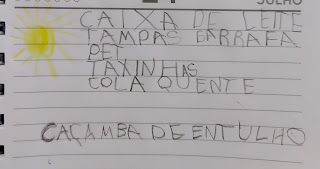 JULHO
CAIXA DE LEITE
TAMPAS GARRAFA
PET
TAXINHAS
COLA QUENTE
CAÇAMBA DE ENTULHO